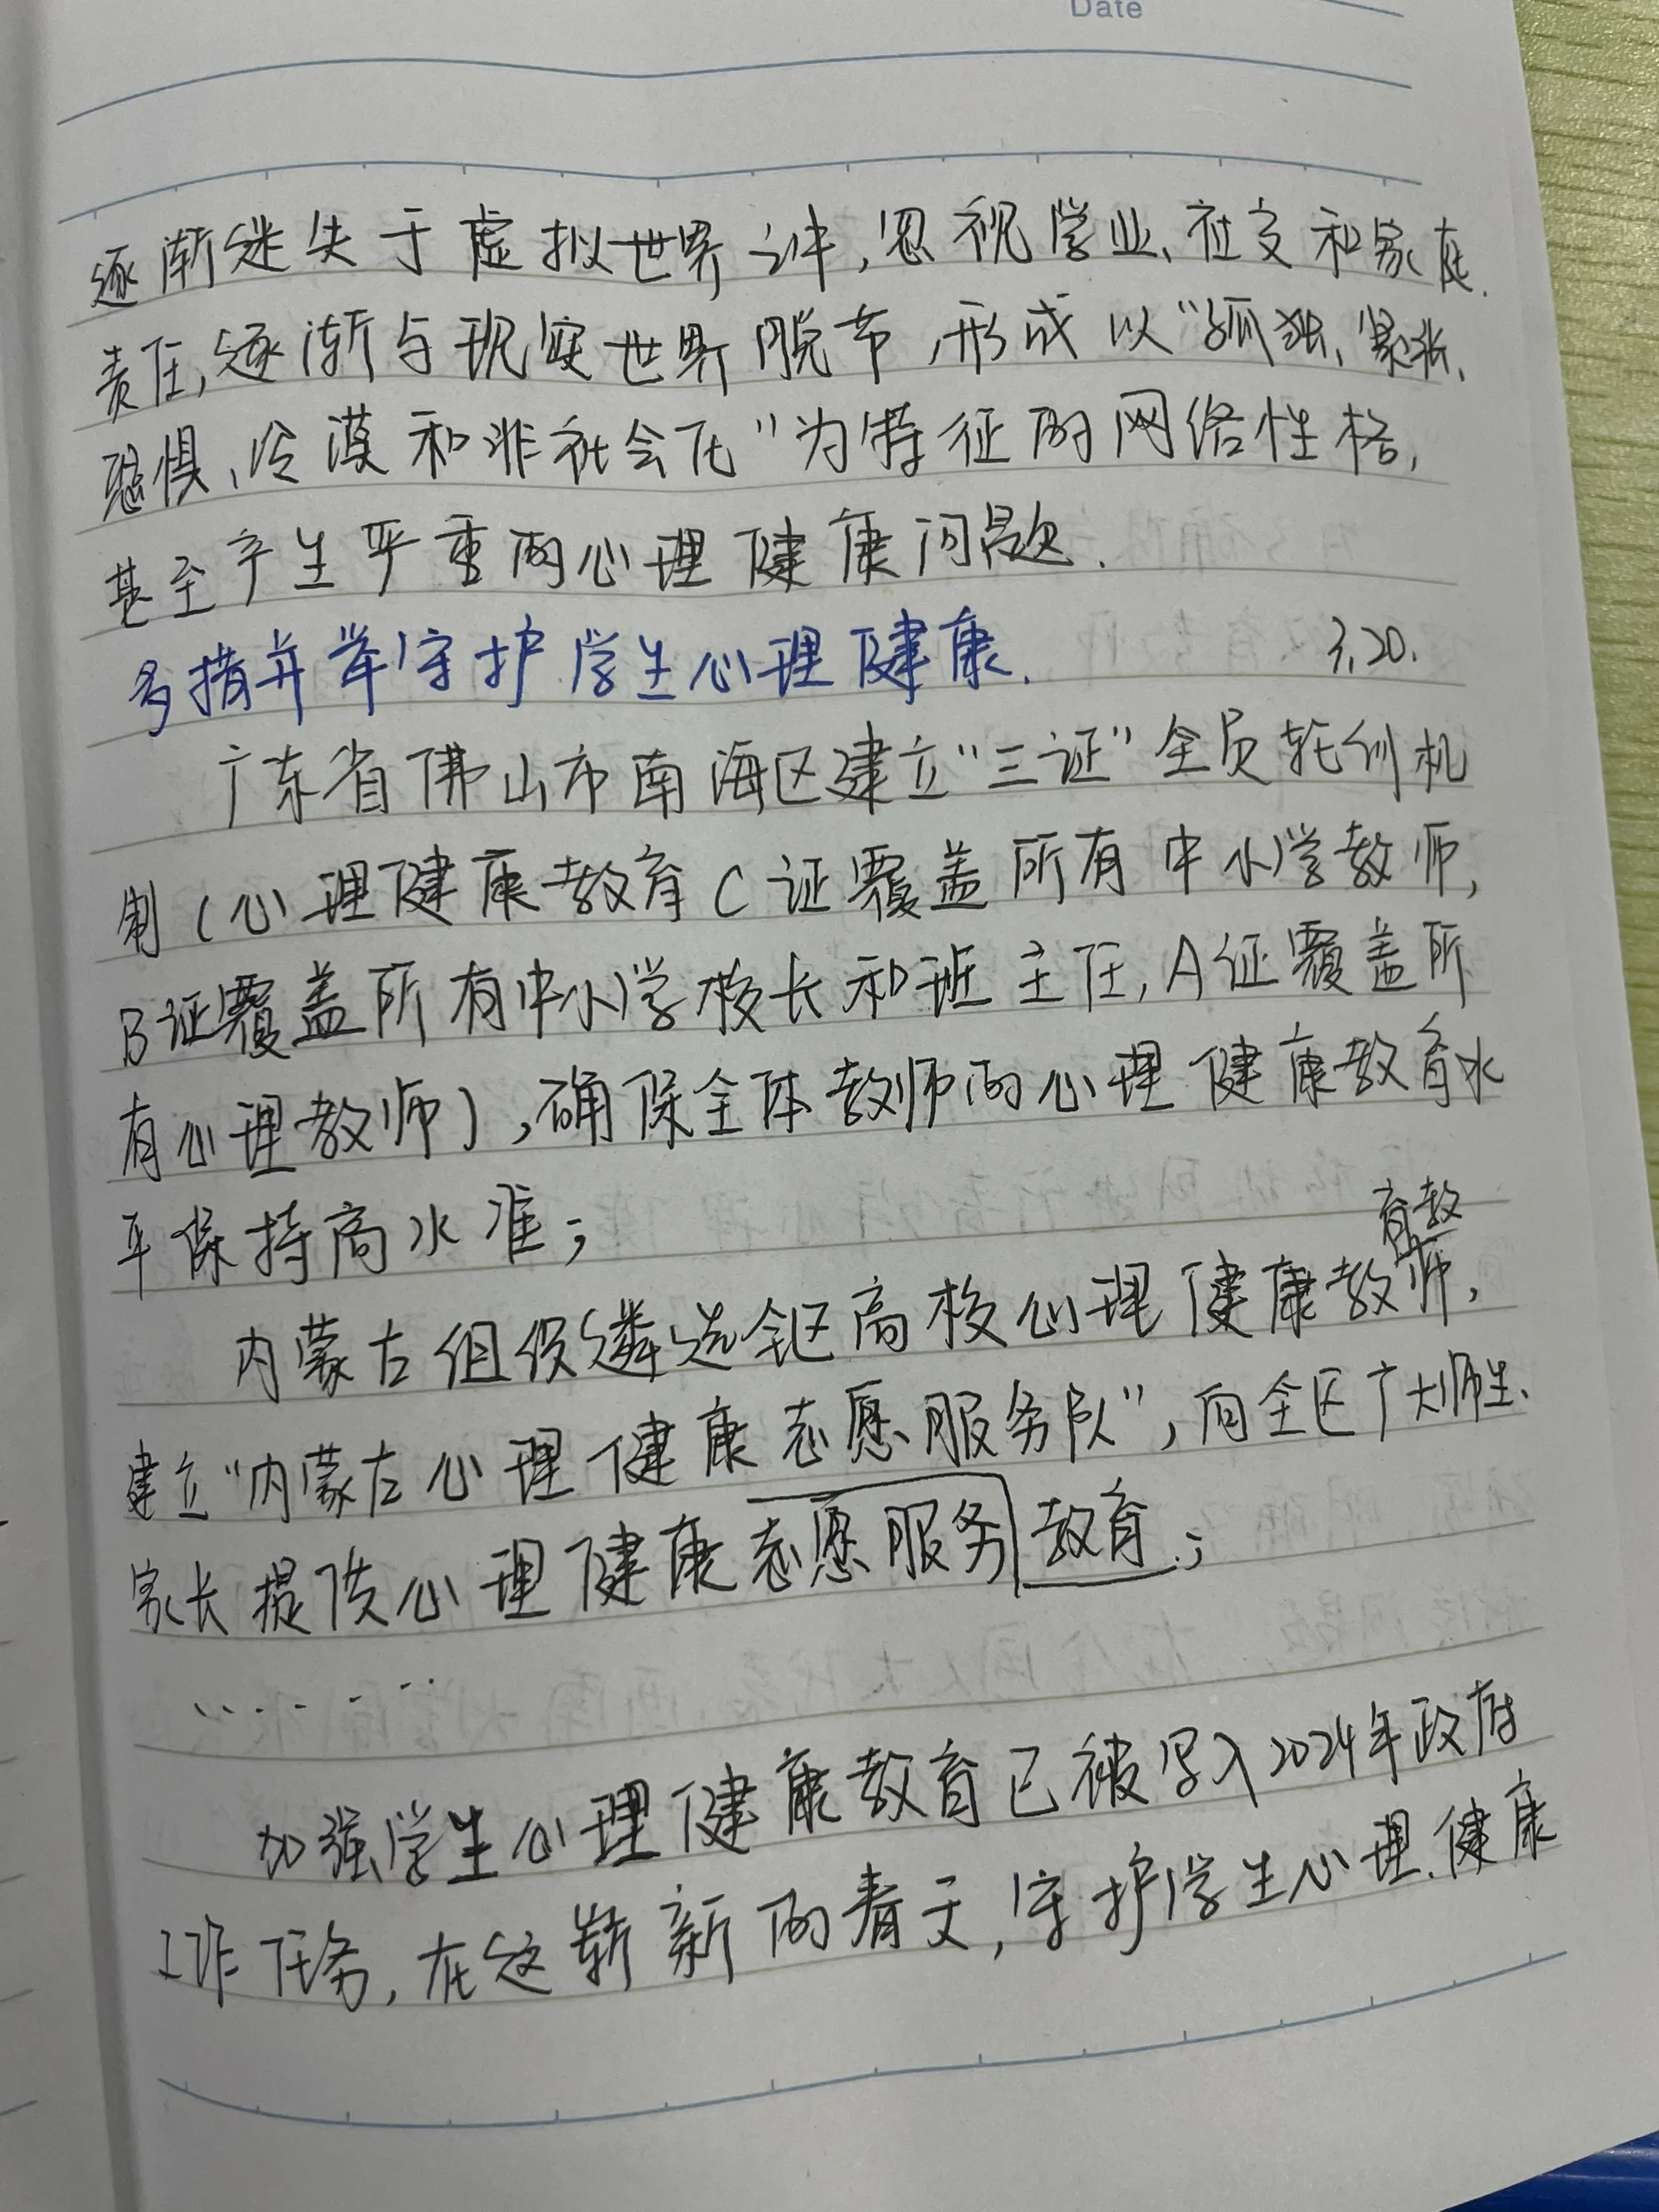 Date
逐渐迷失于虚拟世界之中,忽视学业、社交和家庭
责任,逐渐与现实世界脱节,形成以“孤独、紧张、
恐惧、冷漠和非社会化”为特征的网络性格,
甚至产生严重的心理健康问题.
多措并举守护学生心理健康. 3.20.
广东省佛山市南海区建立“三证”全员轮训机
制(心理健康教育C证覆盖所有中小学教师,
B证覆盖所有中小学校长和班主任,A证覆盖所
有心理教师),确保全体教师的心理健康教育水
平保持高水准;
育教
内蒙古组织遴选全区高校心理健康教师,
建立“内蒙古心理健康志愿服务队”,向全区广大师生、
家长提供心理健康志愿服务教育.;
.......
加强学生心理健康教育已被写入2024年政府
工作任务,在这崭新的春天,守护学生心理健康